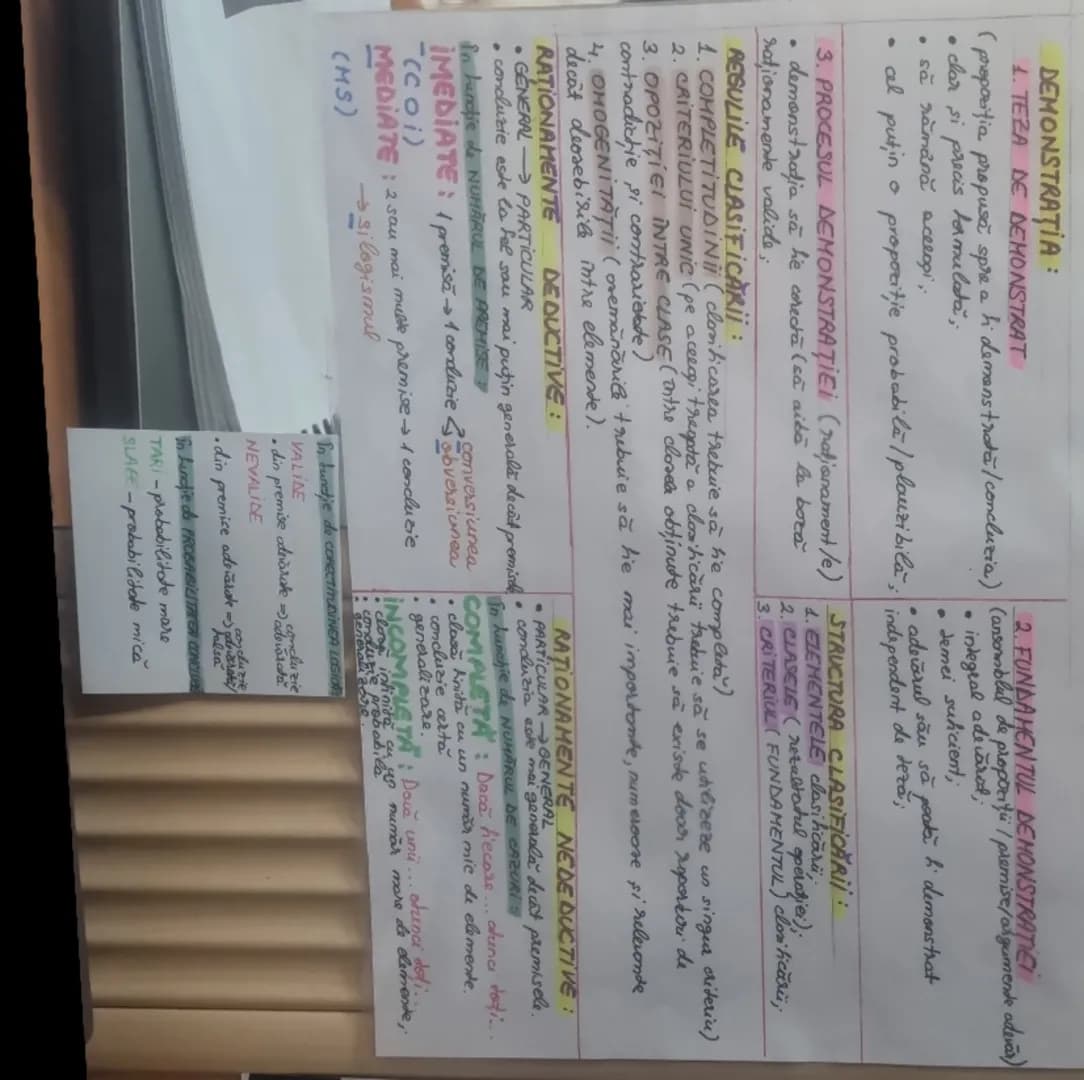 DEMONSTRAȚIA:
1. TEZA DE DEMONSTRAT
(propoziția propusă spre a fi demonstrată/concluzia)
• clar și precis formulată;
• să rămână aceeași;
• cel puțin o propoziție probabilă/plauzibilă;
2. FUNDAMENTUL DEMONSTRAȚIEI
(ansamblul de propoziții/premise/argumente adevăr)
• integral adevărat;
• temei suficient;
• adevărul său să poată fi demonstrat
independent de teză;
3. PROCESUL DEMONSTRAȚIEI (raționament/e)
• demonstrația să fie corectă (să aibă la bază
raționamente valide;
STRUCTURA CLASIFICĂRII:
1. ELEMENTELE clasificării;
2. CLASELE (rezultatul operației);
3. CRITERIUL (FUNDAMENTUL) clasificării;
REGULILE CLASIFICĂRII:
1. COMPLETITUDINII (clasificarea trebuie să fie completă)
2. CRITERIULUI UNIC (pe aceeași treaptă a clasificării trebuie să se utilizeze un singur criteriu)
3. OPOZIȚIEI ÎNTRE CLASE (între clasele obținute trebuie să existe doar raporturi de
contradicție și contrarietate)
4. OMOGENITĂȚII (asemănările trebuie să fie mai importante, numeroase și relevante
decât deosebirile între elemente).
RAȚIONAMENTE DEDUCTIVE:
• GENERAL → PARTICULAR
• concluzie este la fel sau mai puțin generală decât premisele
În funcție de NUMĂRUL DE PREMISE:
IMEDIATE: 1 premisă → 1 concluzie
conversiunea
obversiunea
(C O I)
MEDIATE: 2 sau mai multe premise → 1 concluzie
→ silogismul
(MS)
RAȚIONAMENTE NEDEDUCTIVE:
• PARTICULAR → GENERAL
• concluzia este mai generală decât premisele.
În funcție de NUMĂRUL DE CAZURI:
COMPLETĂ: Dacă fiecare... atunci toți...
• clasă finită cu un număr mic de elemente.
• concluzie certă
• generalizare.
INCOMPLETĂ: Dacă unii... atunci toți...
• clasă infinită cu un număr mare de elemente;
• concluzie probabilă
• generalizare.
În funcție de CORECTITUDINEA LOGICĂ
VALIDE
• din premise adevărate => concluzie adevărată
NEVALIDE
• din premise adevărate => concluzie adevărată/falsă
În funcție de PROBABILITATEA CONCLUZIEI
TARI - probabilitate mare
SLABE - probabilitate mică